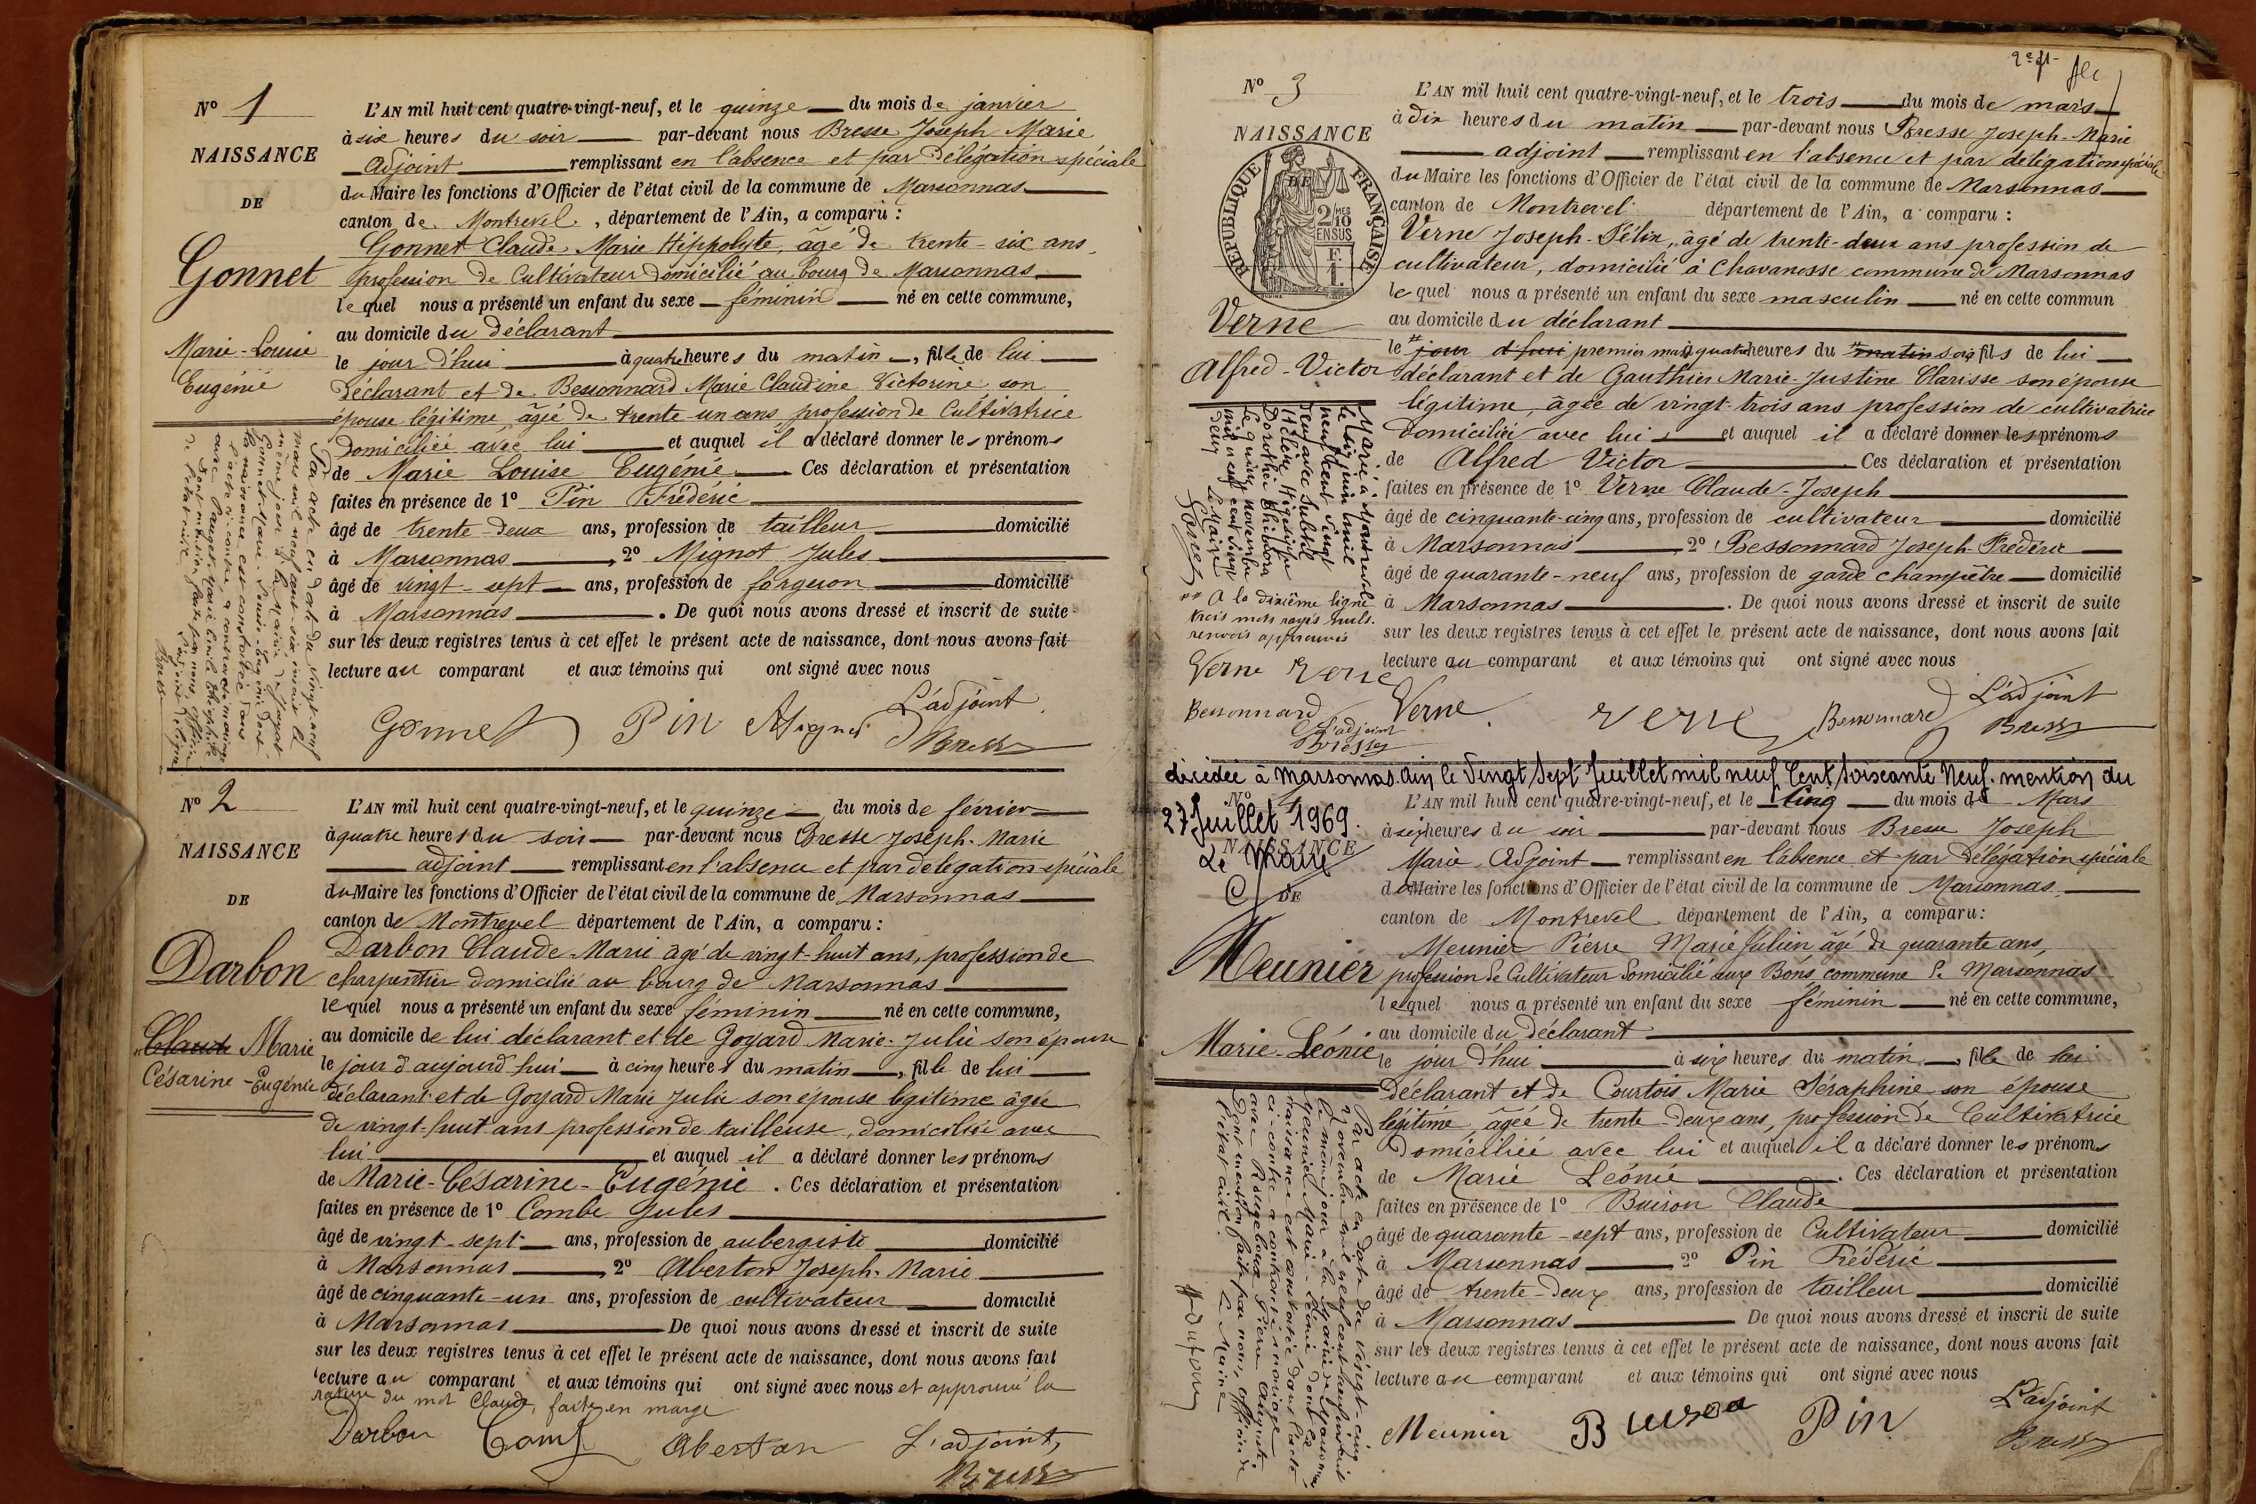 N° 1
NAISSANCE
DE
Gonnet
Marie-Louise
Eugénie
L'AN mil huit cent quatre-vingt-neuf, et le quinze du mois de janvier
à six heures du soir par-devant nous Bresse Joseph Marie
adjoint remplissant en l'absence et par délégation spéciale
du Maire les fonctions d'Officier de l'état civil de la commune de Marsonnas
canton de Montrevel, département de l'Ain, a comparu :
Gonnet Claude Marie Hippolyte, âgé de trente-six ans,
profession de Cultivateur domicilié au bourg de Marsonnas
lequel nous a présenté un enfant du sexe féminin né en cette commune,
au domicile du déclarant
le jour d'hui à quatre heures du matin, fille de lui
déclarant et de Bessonnard Marie Claudine Victorine son
épouse légitime, âgée de trente un ans, profession de Cultivatrice
domiciliée avec lui et auquel il a déclaré donner les prénoms
de Marie Louise Eugénie. Ces déclaration et présentation
faites en présence de 1° Pin Frédéric
âgé de trente-deux ans, profession de tailleur domicilié
à Marsonnas, 2° Mignot Jules
âgé de vingt-sept ans, profession de forgeron domicilié
à Marsonnas. De quoi nous avons dressé et inscrit de suite
sur les deux registres tenus à cet effet le présent acte de naissance, dont nous avons fait
lecture au comparant et aux témoins qui ont signé avec nous
Gonnet Pin Mignot L'adjoint
Bresse
Par acte en date du vingt-neuf
mars mil neuf cent-six, mais le
même jour à la Mairie de
Gonnet Marie-Louise-Eugénie dont
la naissance est constatée dans
l'acte ci-contre, a contracté mariage
avec
Dont mention faite par nous, officier
de l'état civil.
Bresse
N° 2
NAISSANCE
DE
Darbon
Claude Marie
Césarine-Eugénie
L'AN mil huit cent quatre-vingt-neuf, et le quinze du mois de février
à quatre heures du soir par-devant nous Bresse Joseph-Marie
adjoint remplissant en l'absence et par délégation spéciale
du Maire les fonctions d'Officier de l'état civil de la commune de Marsonnas
canton de Montrevel département de l'Ain, a comparu :
Darbon Claude-Marie âgé de vingt-huit ans, profession de
charpentier domicilié au bourg de Marsonnas
lequel nous a présenté un enfant du sexe féminin né en cette commune,
au domicile de lui déclarant et de Goyard Marie-Julie son épouse
le jour d'aujourd'hui à cinq heures du matin, fille de lui
déclarant et de Goyard Marie Julie son épouse légitime âgée
de vingt-huit ans profession de tailleuse, domiciliée avec
lui et auquel il a déclaré donner les prénoms
de Marie-Césarine-Eugénie. Ces déclaration et présentation
faites en présence de 1° Combe Jules
âgé de vingt-sept ans, profession de aubergiste domicilié
à Marsonnas, 2° Aberton Joseph-Marie
âgé de cinquante-un ans, profession de cultivateur domicilié
à Marsonnas De quoi nous avons dressé et inscrit de suite
sur les deux registres tenus à cet effet le présent acte de naissance, dont nous avons fait
lecture au comparant et aux témoins qui ont signé avec nous et approuvé la
rature du mot Claude, faite en marge
Darbon Comb Aberton L'adjoint,
Bresse
N° 3
NAISSANCE
DE
RÉPUBLIQUE FRANÇAISE
2/10
EN SUS
Verne
Alfred-Victor
L'AN mil huit cent quatre-vingt-neuf, et le trois du mois de mars
à dix heures du matin par-devant nous Bresse Joseph-Marie
adjoint remplissant en l'absence et par délégation spéciale
du Maire les fonctions d'Officier de l'état civil de la commune de Marsonnas
canton de Montrevel département de l'Ain, a comparu :
Verne Joseph-Félix, âgé de trente-deux ans profession de
cultivateur, domicilié à Chavanosse commune de Marsonnas
lequel nous a présenté un enfant du sexe masculin né en cette commun
au domicile du déclarant
le jour d'hui premier mars à quatre heures du matin soir fils de lui
déclarant et de Gauthier Marie-Justine Clarisse son épouse
légitime, âgée de vingt-trois ans profession de cultivatrice
domiciliée avec lui et auquel il a déclaré donner les prénoms
de Alfred Victor. Ces déclaration et présentation
faites en présence de 1° Verne Claude-Joseph
âgé de cinquante-cinq ans, profession de cultivateur domicilié
à Marsonnas 2° Bessonnard Joseph-Frédéric
âgé de quarante-neuf ans, profession de garde champêtre domicilié
à Marsonnas. De quoi nous avons dressé et inscrit de suite
sur les deux registres tenus à cet effet le présent acte de naissance, dont nous avons fait
lecture au comparant et aux témoins qui ont signé avec nous
Verne Verne Bessonnard L'adjoint
Bresse
Marié à Montrevel
le six juin mil
neuf cent vingt
neuf avec Subtil
Hélène
Dorothée
Le quinze novembre
mil neuf cent vingt
neuf Le Maire
A la dixième ligne
trois mots rayés nuls.
renvois approuvés
Verne Verne
Bessonnard
L'adjoint
Bresse
décédée à Marsonnas Ain le Vingt Sept Juillet mil neuf Cent Soixante Neuf. mention du
27 Juillet 1969.
Le Maire
N° 4
NAISSANCE
DE
Meunier
Marie-Léonie
L'AN mil huit cent quatre-vingt-neuf, et le Cinq du mois de Mars
à six heures du soir par-devant nous Bresse Joseph
Marie Adjoint remplissant en l'absence et par délégation spéciale
du Maire les fonctions d'Officier de l'état civil de la commune de Marsonnas
canton de Montrevel département de l'Ain, a comparu :
Meunier Pierre Marie Julien âgé de quarante ans,
profession de Cultivateur domicilié aux Bons, commune de Marsonnas
lequel nous a présenté un enfant du sexe féminin né en cette commune,
au domicile du déclarant
le jour d'hui à six heures du matin, fille de lui
déclarant et de Courtois Marie Séraphine son épouse
légitime, âgée de trente-deux ans, profession de Cultivatrice
domiciliée avec lui et auquel il a déclaré donner les prénoms
de Marie Léonie. Ces déclaration et présentation
faites en présence de 1° Buiron Claude
âgé de quarante-sept ans, profession de Cultivateur domicilié
à Marsonnas 2° Pin Frédéric
âgé de trente-deux ans, profession de tailleur domicilié
à Marsonnas De quoi nous avons dressé et inscrit de suite
sur les deux registres tenus à cet effet le présent acte de naissance, dont nous avons fait
lecture au comparant et aux témoins qui ont signé avec nous
Meunier Buiron Pin L'adjoint
Bresse
Par acte en date du vingt-cinq
novembre mil neuf cent huit
le même jour à la Mairie de Marsonnas,
Meunier Marie-Léonie dont la
naissance est constatée dans l'acte
ci-contre a contracté mariage
avec Rougeboux Pierre Auguste.
Dont mention faite par nous, officier de
l'état civil. Le Maire